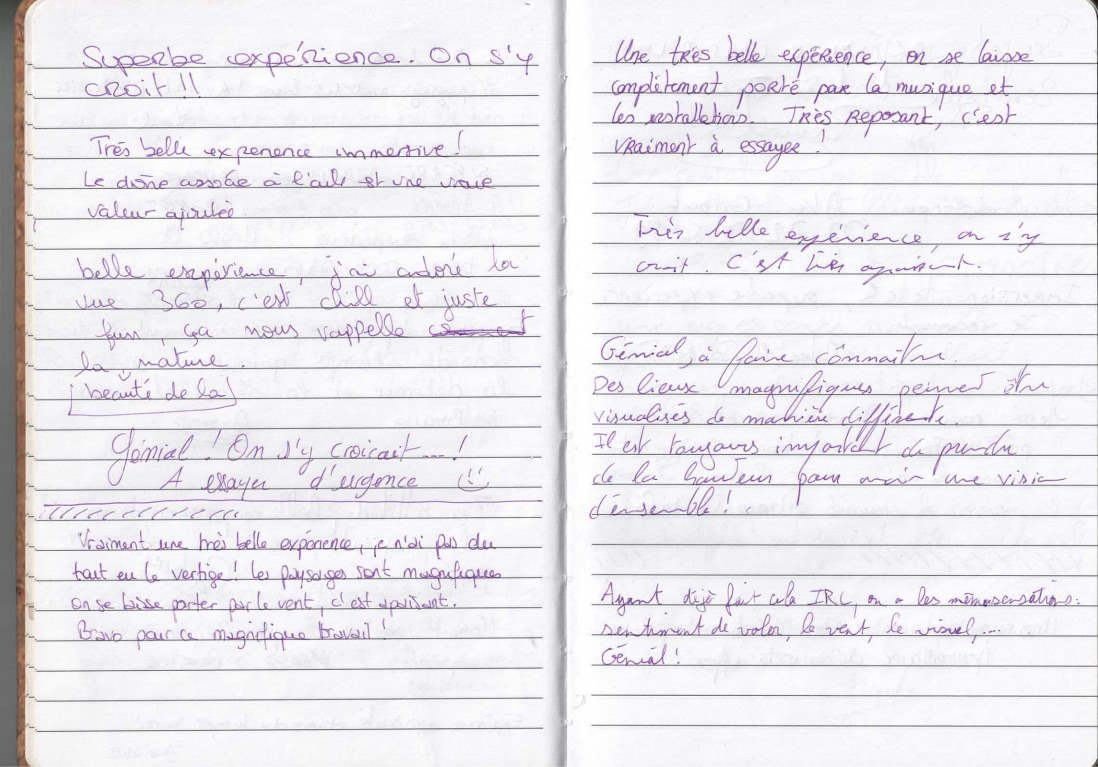 Superbe expérience. On s'y
croit !!
Très belle experience immersive !
Le drône associée à l'aile est une vraie
valeur ajoutée
belle expérience, j'ai adoré la
vue 360, c'est chill et juste
fun, ça nous rappelle
la nature.
beauté de la
Génial ! On s'y croirait ... !
A essayer d'urgence
Vraiment une très belle expérience, je n'ai pas du
tout eu le vertige ! Les paysages sont magnifiques
on se laisse porter par le vent, c'est apaisant.
Bravo pour ce magnifique travail !
Une très belle expérience, on se laisse
complètement porté par la musique et
les installations. Très reposant, c'est
vraiment à essayer !
Très belle expérience, on s'y
croit. C'est très apaisant.
Génial, à faire connaître.
Des lieux magnifiques peuvent être
visualisés de manière différente.
Il est toujours important de prendre
de la hauteur pour avoir une vision
d'ensemble !
Ayant déjà fait cela IRL, on a les mêmes sensations :
sentiment de voler, le vent, le visuel, ...
Génial !